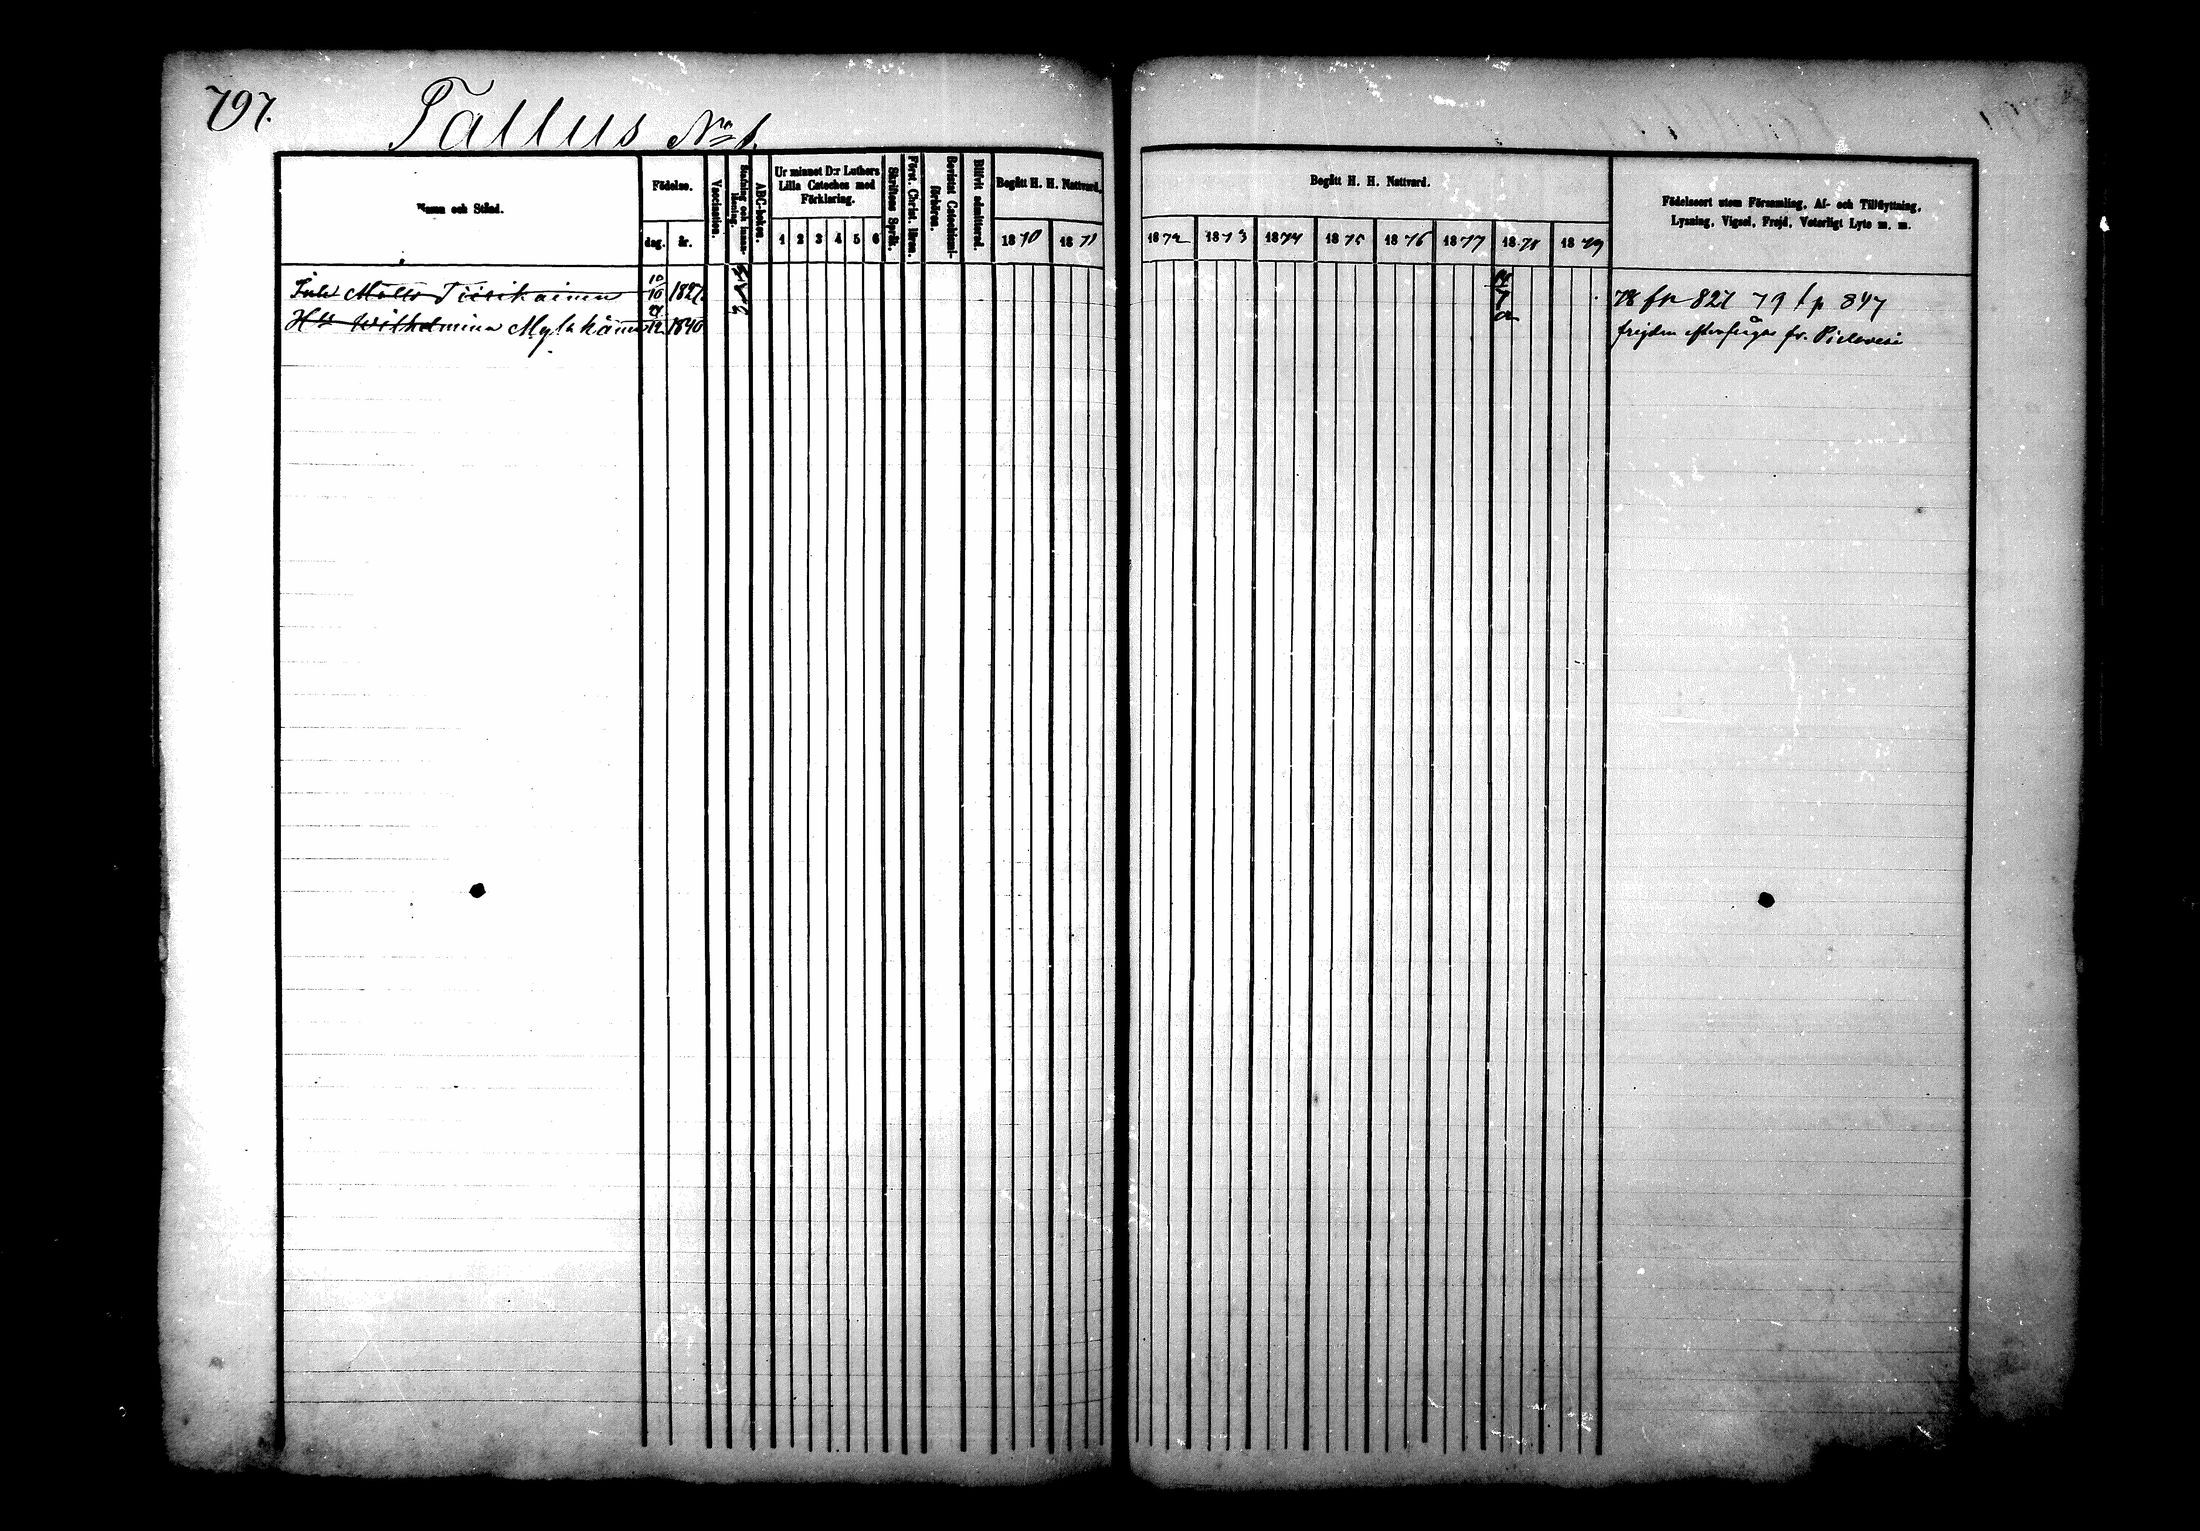 797.
Tallus No 1.
Namn och Stånd.
Födelse.
dag. år.
Vaccination.
Stafning och innanläsning.
ABC-boken.
Ur minnet D:r Luthers
Lilla Cateches med
Förklaring.
1 2 3 4 5 6
Skriftens Språk.
Först. Christ. läran.
Bevistat Catechismiförhören.
Blifvit admitterad.
Begått H. H. Nattvard.
1870 1871
Begått H. H. Nattvard.
1872 1873 1874 1875 1876 1877 1878 1879
Födelseort utom Församling, Af- och Tillflyttning,
Lysning, Vigsel, Frejd, Veterligt Lyte m. m.
Inh Matts Tiirikainen 10/10 1827. 78 fr 827 79 t p 847
H:u Wilhelmina Mylikäinen 12 1840 frejden efterfrågas fr. Pielavesi